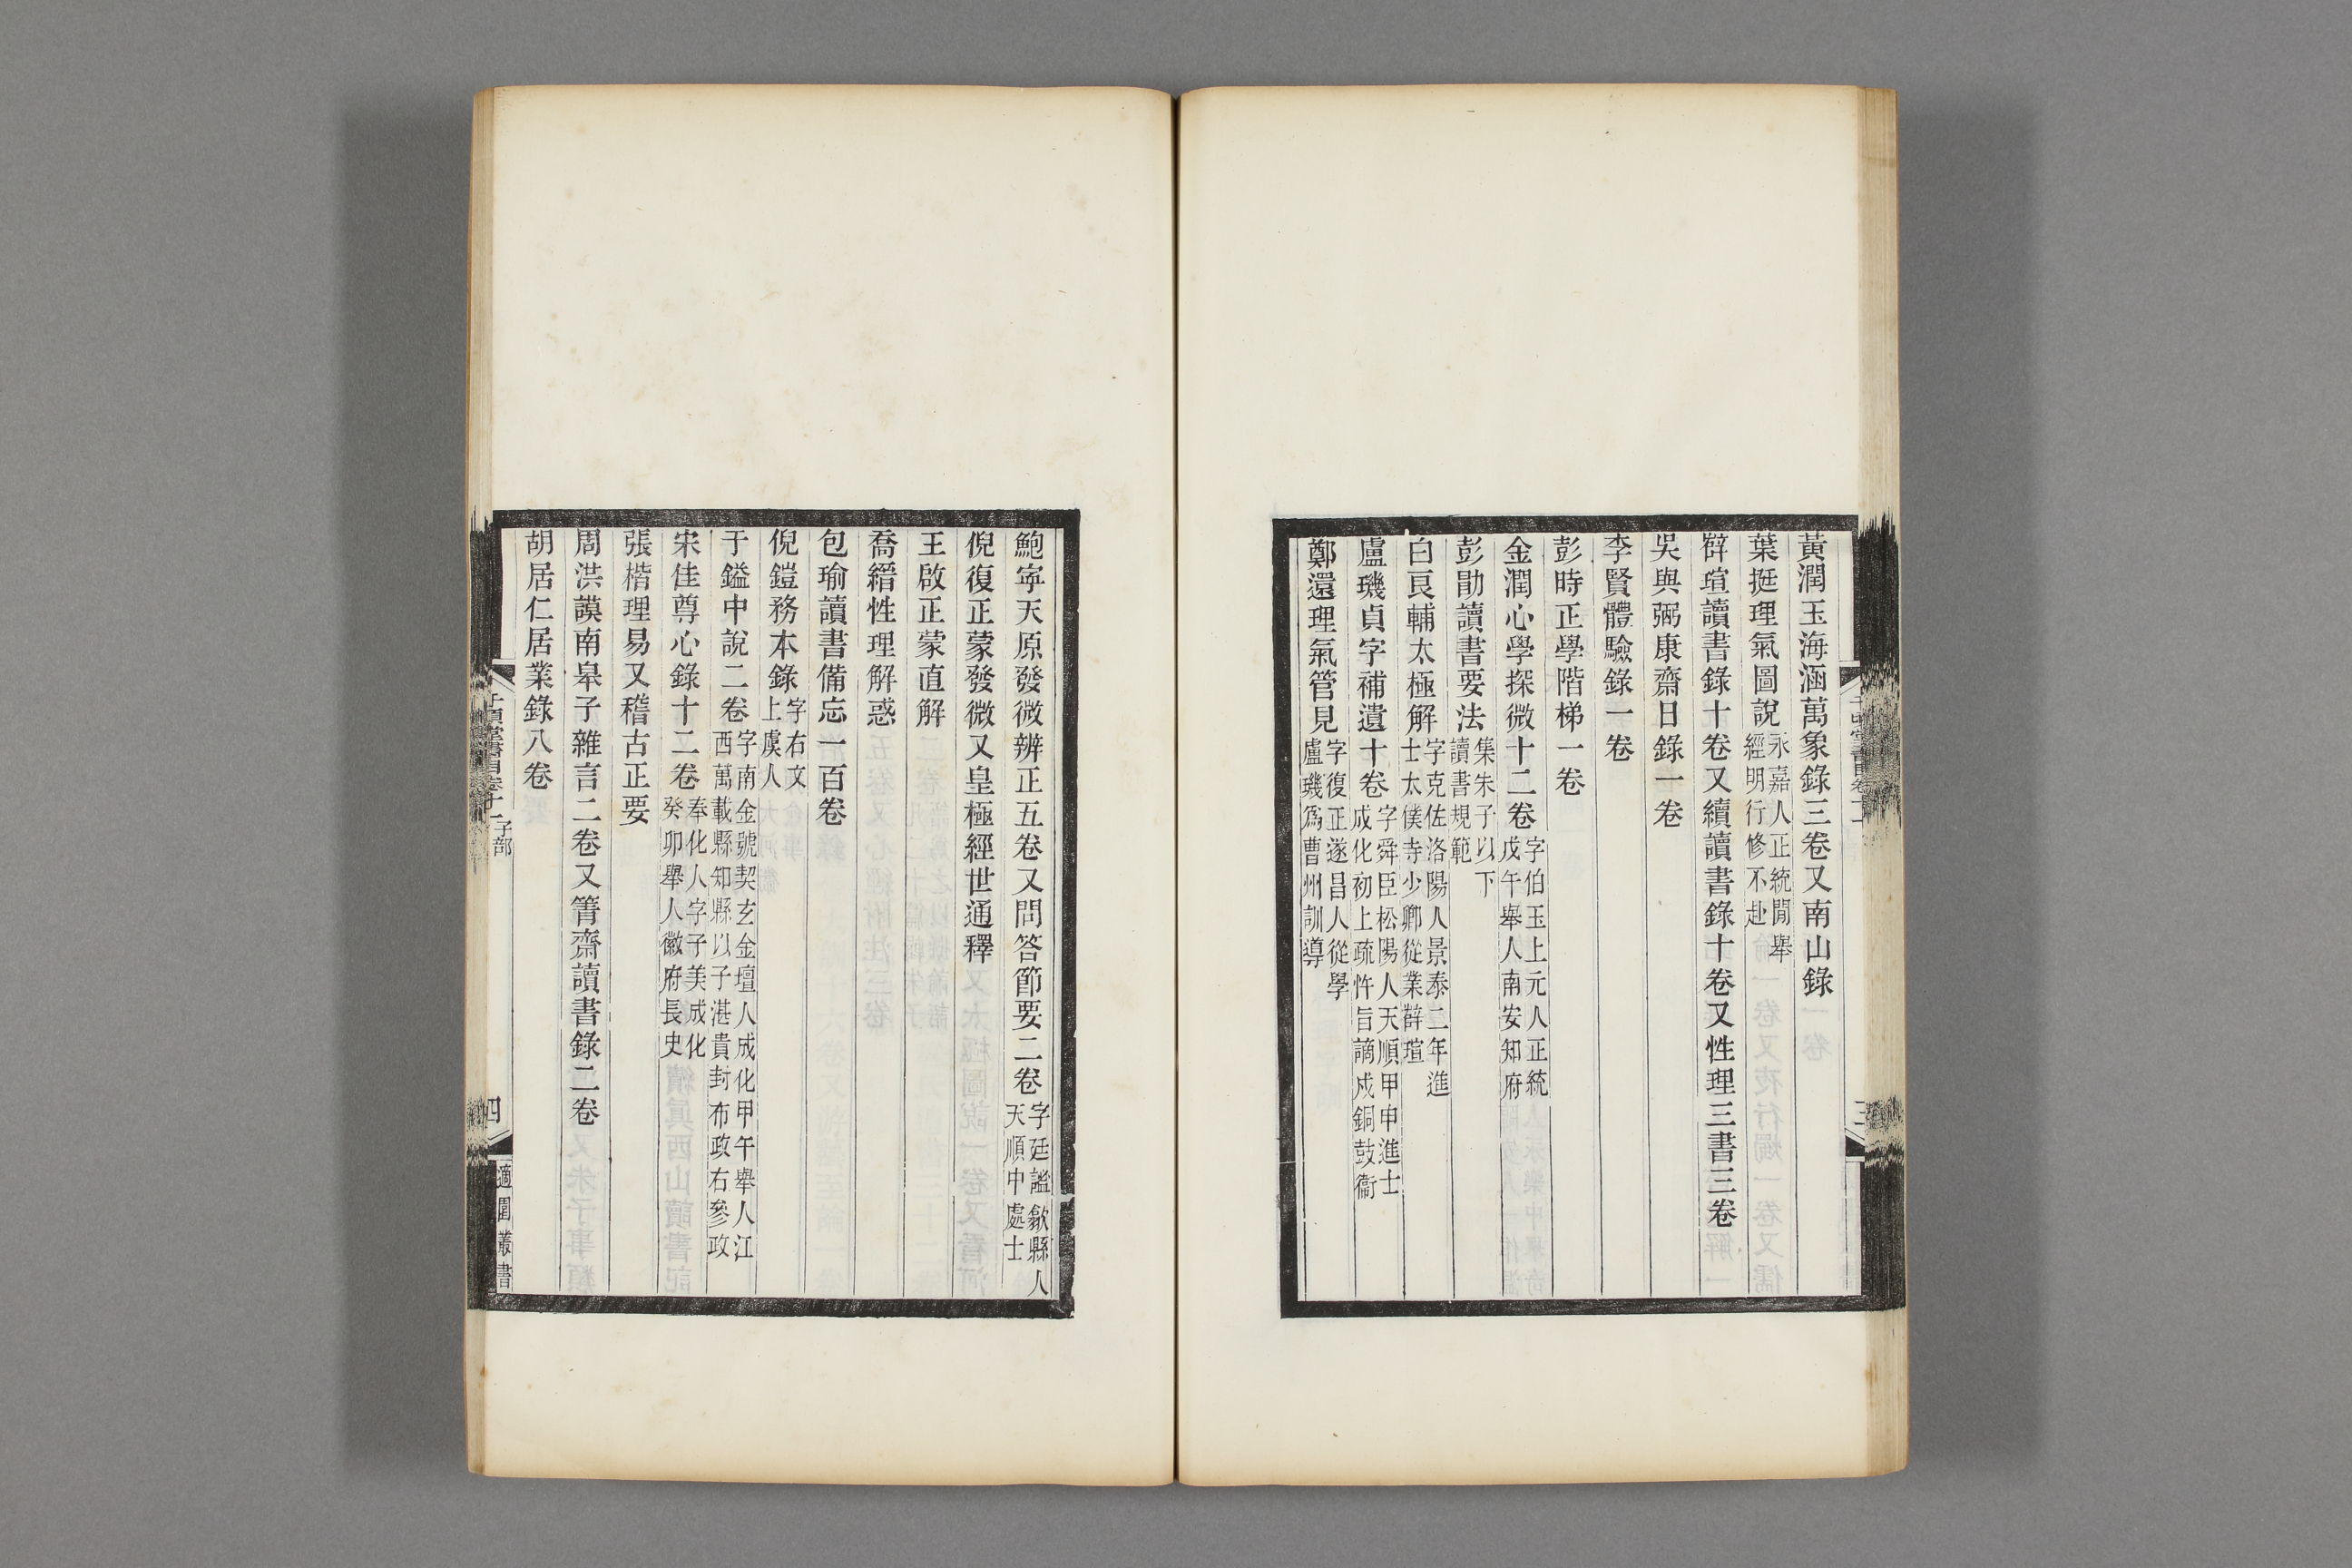 黃潤玉海涵萬象錄三卷又南山錄
葉挺理氣圖說永嘉人正統閒舉經明行修不赴
薛瑄讀書錄十卷又續讀書錄十卷又性理三書三卷
吳與弼康齋日錄一卷
李賢體驗錄一卷
彭時正學階梯一卷
金潤心學探微十二卷字伯玉上元人正統戊午舉人南安知府
彭勖讀書要法集朱子以下讀書規範
白良輔太極解字克佐洛陽人景泰二年進士太僕寺少卿從業薛瑄
盧璣貞字補遺十卷字舜臣松陽人天順甲申進士成化初上疏忤旨謫戍銅鼓衞
鄭還理氣管見字復正遂昌人從學盧璣爲曹州訓導
鮑寧天原發微辨正五卷又問答節要二卷字廷謐歙縣人天順中處士
倪復正蒙發微又皇極經世通釋
王啟正蒙直解
喬縉性理解惑
包瑜讀書備忘一百卷
倪鎧務本錄字右文上虞人
于鎰中說二卷字南金號契玄金壇人成化甲午舉人江西萬載縣知縣以子湛貴封布政右參政
宋佳尊心錄十二卷奉化人字子美成化癸卯舉人徽府長史
張楷理易又稽古正要
周洪謨南皋子雜言二卷又箐齋讀書錄二卷
胡居仁居業錄八卷
千頃堂書目卷十一 子部
四
適園叢書